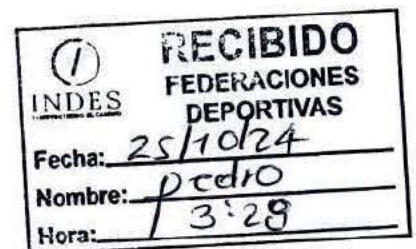 RECIBIDO
FEDERACIONES
DEPORTIVAS
INDES
Fecha: 25/10/24
Nombre: pedro
Hora: 3:29